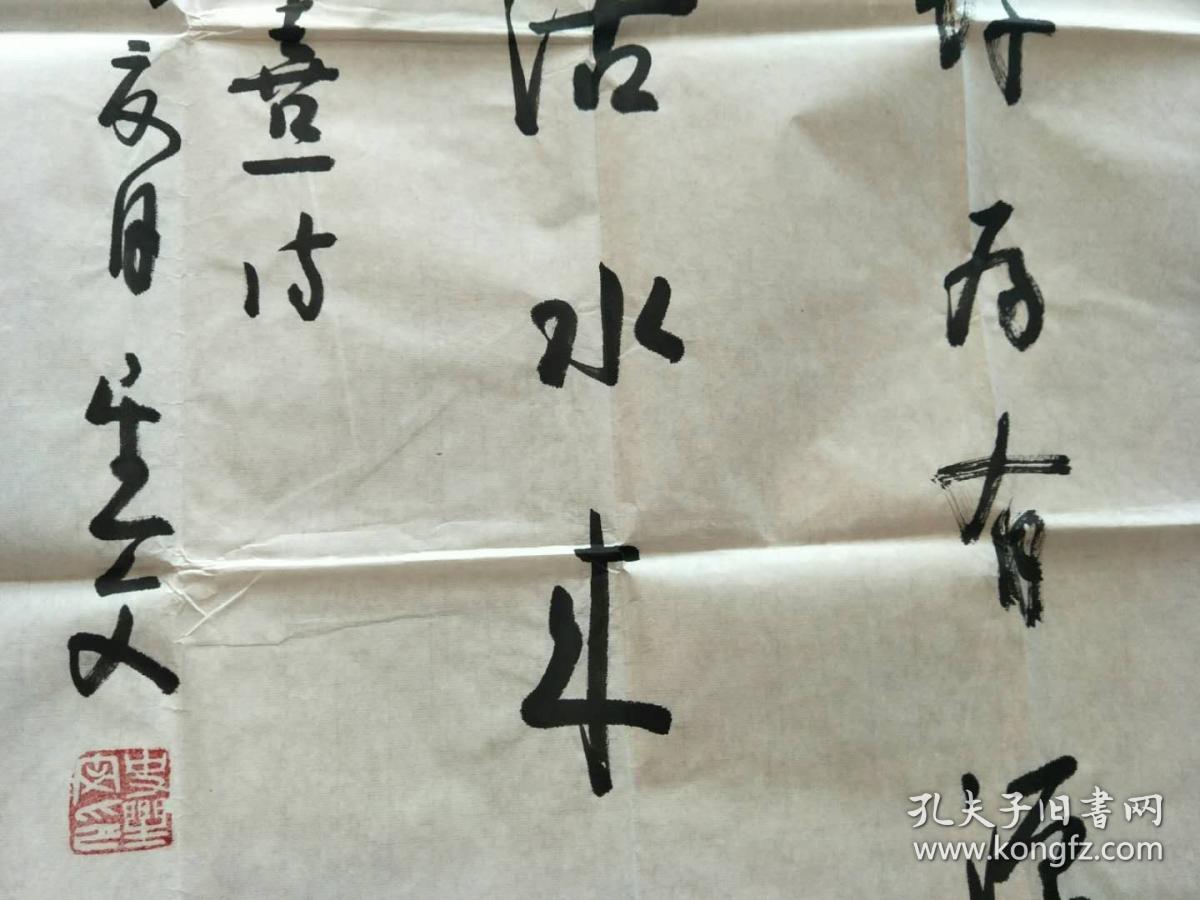 许为有源
活水来
熹诗
夏月星文
史星文印
孔夫子旧书网
www.kongfz.com